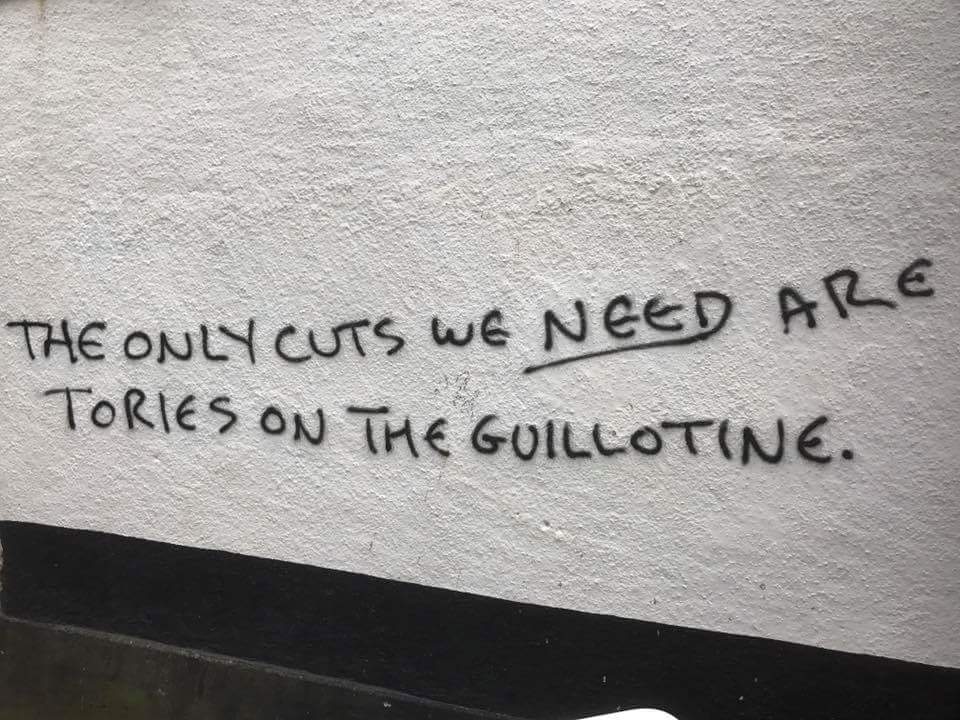 THE ONLY CUTS WE NEED ARE
TORIES ON THE GUILLOTINE.